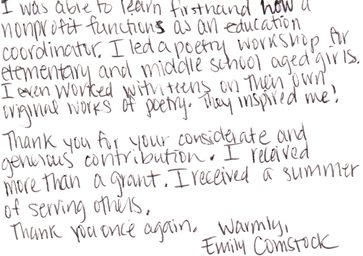 I was able to learn firsthand how a
nonprofit functions as an education
coordinator. I led a poetry workshop for
elementary and middle school aged girls.
I even worked with teens on their own
original works of poetry. They inspired me!
Thank you for your considerate and
generous contribution. I received
more than a grant. I received a summer
of serving others.
Thank you once again. Warmly,
Emily Comstock